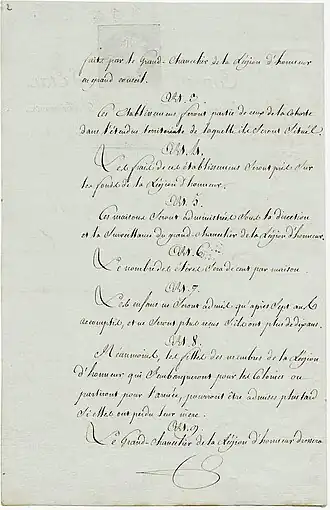 2
faite par le Grand-Chancelier de la Légion d'honneur
en grand conseil.
Art. 3.
Ces établissemens feront partie de ceux de la Cohorte
dans l'étendue territoriale de laquelle ils seront situés.
Art. 4.
Les frais de ces établissemens seront pris sur
les fonds de la Légion d'honneur.
Art. 5.
Ces maisons seront administrées sous la direction
et la surveillance du grand-chancelier de la Légion d'honneur.
Art. 6.
Le nombre des élèves sera de cent par maison.
Art. 7.
Les enfans ne seront admis qu'après sept ans
accomplis, et ne seront plus reçus s'ils ont plus de dix ans.
Art. 8.
Néanmoins, les filles des membres de la Légion
d'honneur qui s'embarqueront pour les Colonies ou
partiront pour l'armée, pourront être admises plus tard
si elles ont perdu leur mère.
Art. 9.
Le Grand-chancelier de la Légion d'honneur dressera